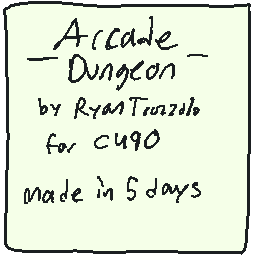 Arcade
Dungeon
by Ryan
for CU90
made in 5 days